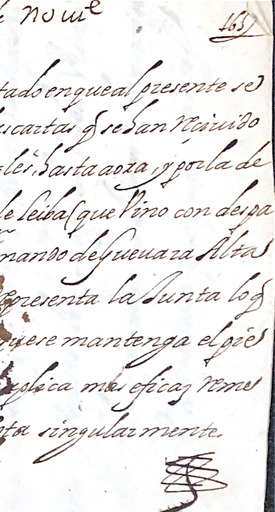 de nouie
1657
tado en que al presente se
as cartas q̃ se han reciuido
les, hasta aora, y por la de
de leiba (que vino con despa
nando de Gueuara Altas
Representa la Junta lo q̃
que se mantenga el pie
aplica mas eficaz reme
ta singularmente